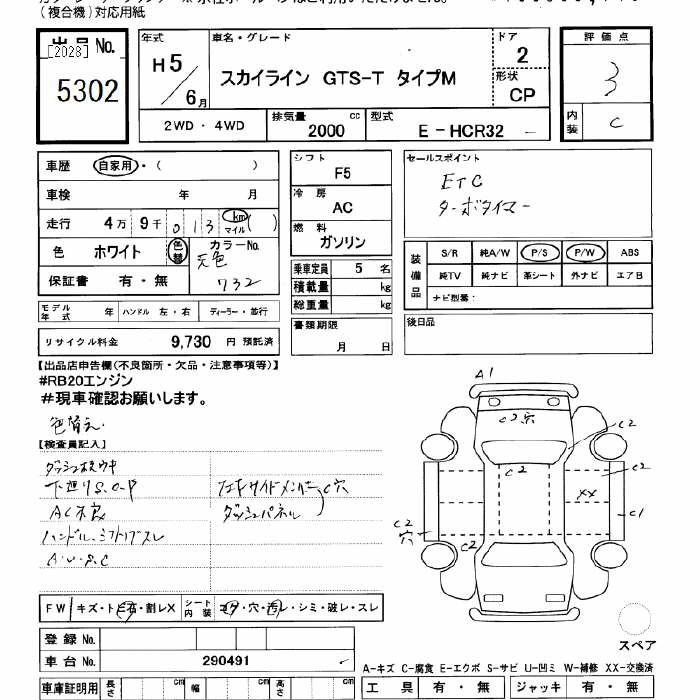 (複合機)対応用紙
出品 No.
[2028]
5302
年式
H5
6月
車名・グレード
スカイライン GTS-T タイプM
ドア
2
形状
CP
評価点
3
内装
C
2WD・4WD
排気量
2000
cc
型式
E-HCR32
車歴
自家用・( )
車検
年 月
走行
4万 9千 013
km
マイル
( )
色
ホワイト
色替
カラーNo.
元色
732
保証書
有・無
シフト
F5
冷房
AC
燃料
ガソリン
乗車定員 5 名
積載量 kg
総重量 kg
セールスポイント
ETC
ターボタイマー
装備品
S/R 純A/W P/S P/W ABS
純TV 純ナビ 革シート 外ナビ エアB
ナビ型番:
モデル年式 年 ハンドル 左・右 ディーラー・並行
リサイクル料金 9,730 円 預託済
書類期限
月 日
後日品
【出品店申告欄(不良箇所・欠品・注意事項等)】
#RB20エンジン
#現車確認お願いします。
色替え.
【検査員記入】
下廻りS.O-P
AC不良
ハンドル、シフトノブスレ
A・U・S・C
ダッシュパネル
C穴
A1
C2穴
C2
C2
C2
XX
C1
C2
穴
C2
スペア
FW キズ・トビ石・割レX シート内装 コゲ・穴・汚レ・シミ・破レ・スレ
登録 No.
車台 No. 290491
A-キズ C-腐食 E-エクボ S-サビ U-凹ミ W-補修 XX-交換済
車庫証明用 長さ cm 幅 cm 高さ cm
工具 有・無 ジャッキ 有・無